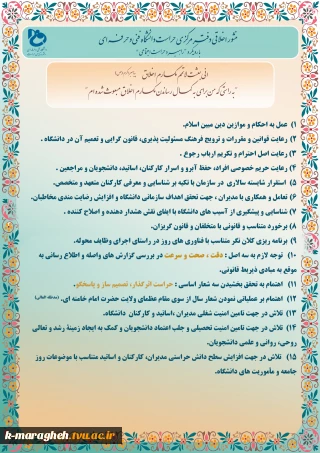 منشور اخلاقی دفتر مرکزی حراست دانشگاه فنی و حرفه‌ای
انی بعثت لاتمم مکارم اخلاق
"به راستی که من برای به کمال رساندن مکارم اخلاق مبعوث شده ام."
۱) عمل به احکام و موازین دین مبین اسلام.
۲) رعایت قوانین و مقررات و ترویج فرهنگ مسئولیت پذیری، قانون گرایی و تعمیم آن در دانشگاه .
۳) رعایت اصل احترام و تکریم ارباب رجوع .
۴) رعایت حریم خصوصی افراد، حفظ آبرو و اسرار کارکنان، اساتید، دانشجویان و مراجعین .
۵) استقرار شایسته سالاری در سازمان با تکیه بر شناسایی و معرفی کارکنان متعهد و متخصص.
۶) تعامل و همکاری با مدیران ، جهت تحقق اهداف سازمانی دانشگاه و افزایش رضایت مندی مخاطبان.
۷) شناسایی و پیشگیری از آسیب های دانشگاه با ایفای نقش هشدار دهنده و اصلاح کننده .
۸) برخورد متناسب و قانونی با متخلفان و قانون گریزان.
۹) برنامه ریزی کلان نگر متناسب با فناوری های روز در راستای اجرای وظایف محوله.
۱۰) توجه لازم به سه اصل : دقت ، صحت و سرعت در بررسی گزارش های واصله و اطلاع رسانی به
موقع به مبادی ذیربط قانونی.
۱۱) اهتمام به تحقق بخشیدن سه شعار اساسی : حراست اثرگذار، تصمیم ساز و پاسخگو.
۱۲) اهتمام بر عملیاتی نمودن شعار سال از سوی مقام عظمای ولایت حضرت امام خامنه ای.
۱۳) تلاش در جهت تامین امنیت شغلی مدیران ،اساتید و کارکنان دانشگاه.
۱۴) تلاش در جهت تامین امنیت تحصیلی و جلب اعتماد دانشجویان و کمک به ایجاد زمینهٔ رشد و تعالی
روحی، روانی و علمی دانشجویان.
۱۵) تلاش در جهت افزایش سطح دانش حراستی مدیران، کارکنان و اساتید متناسب با موضوعات روز
جامعه و مأموریت های دانشگاه.
k-maragheh.tvu.ac.ir